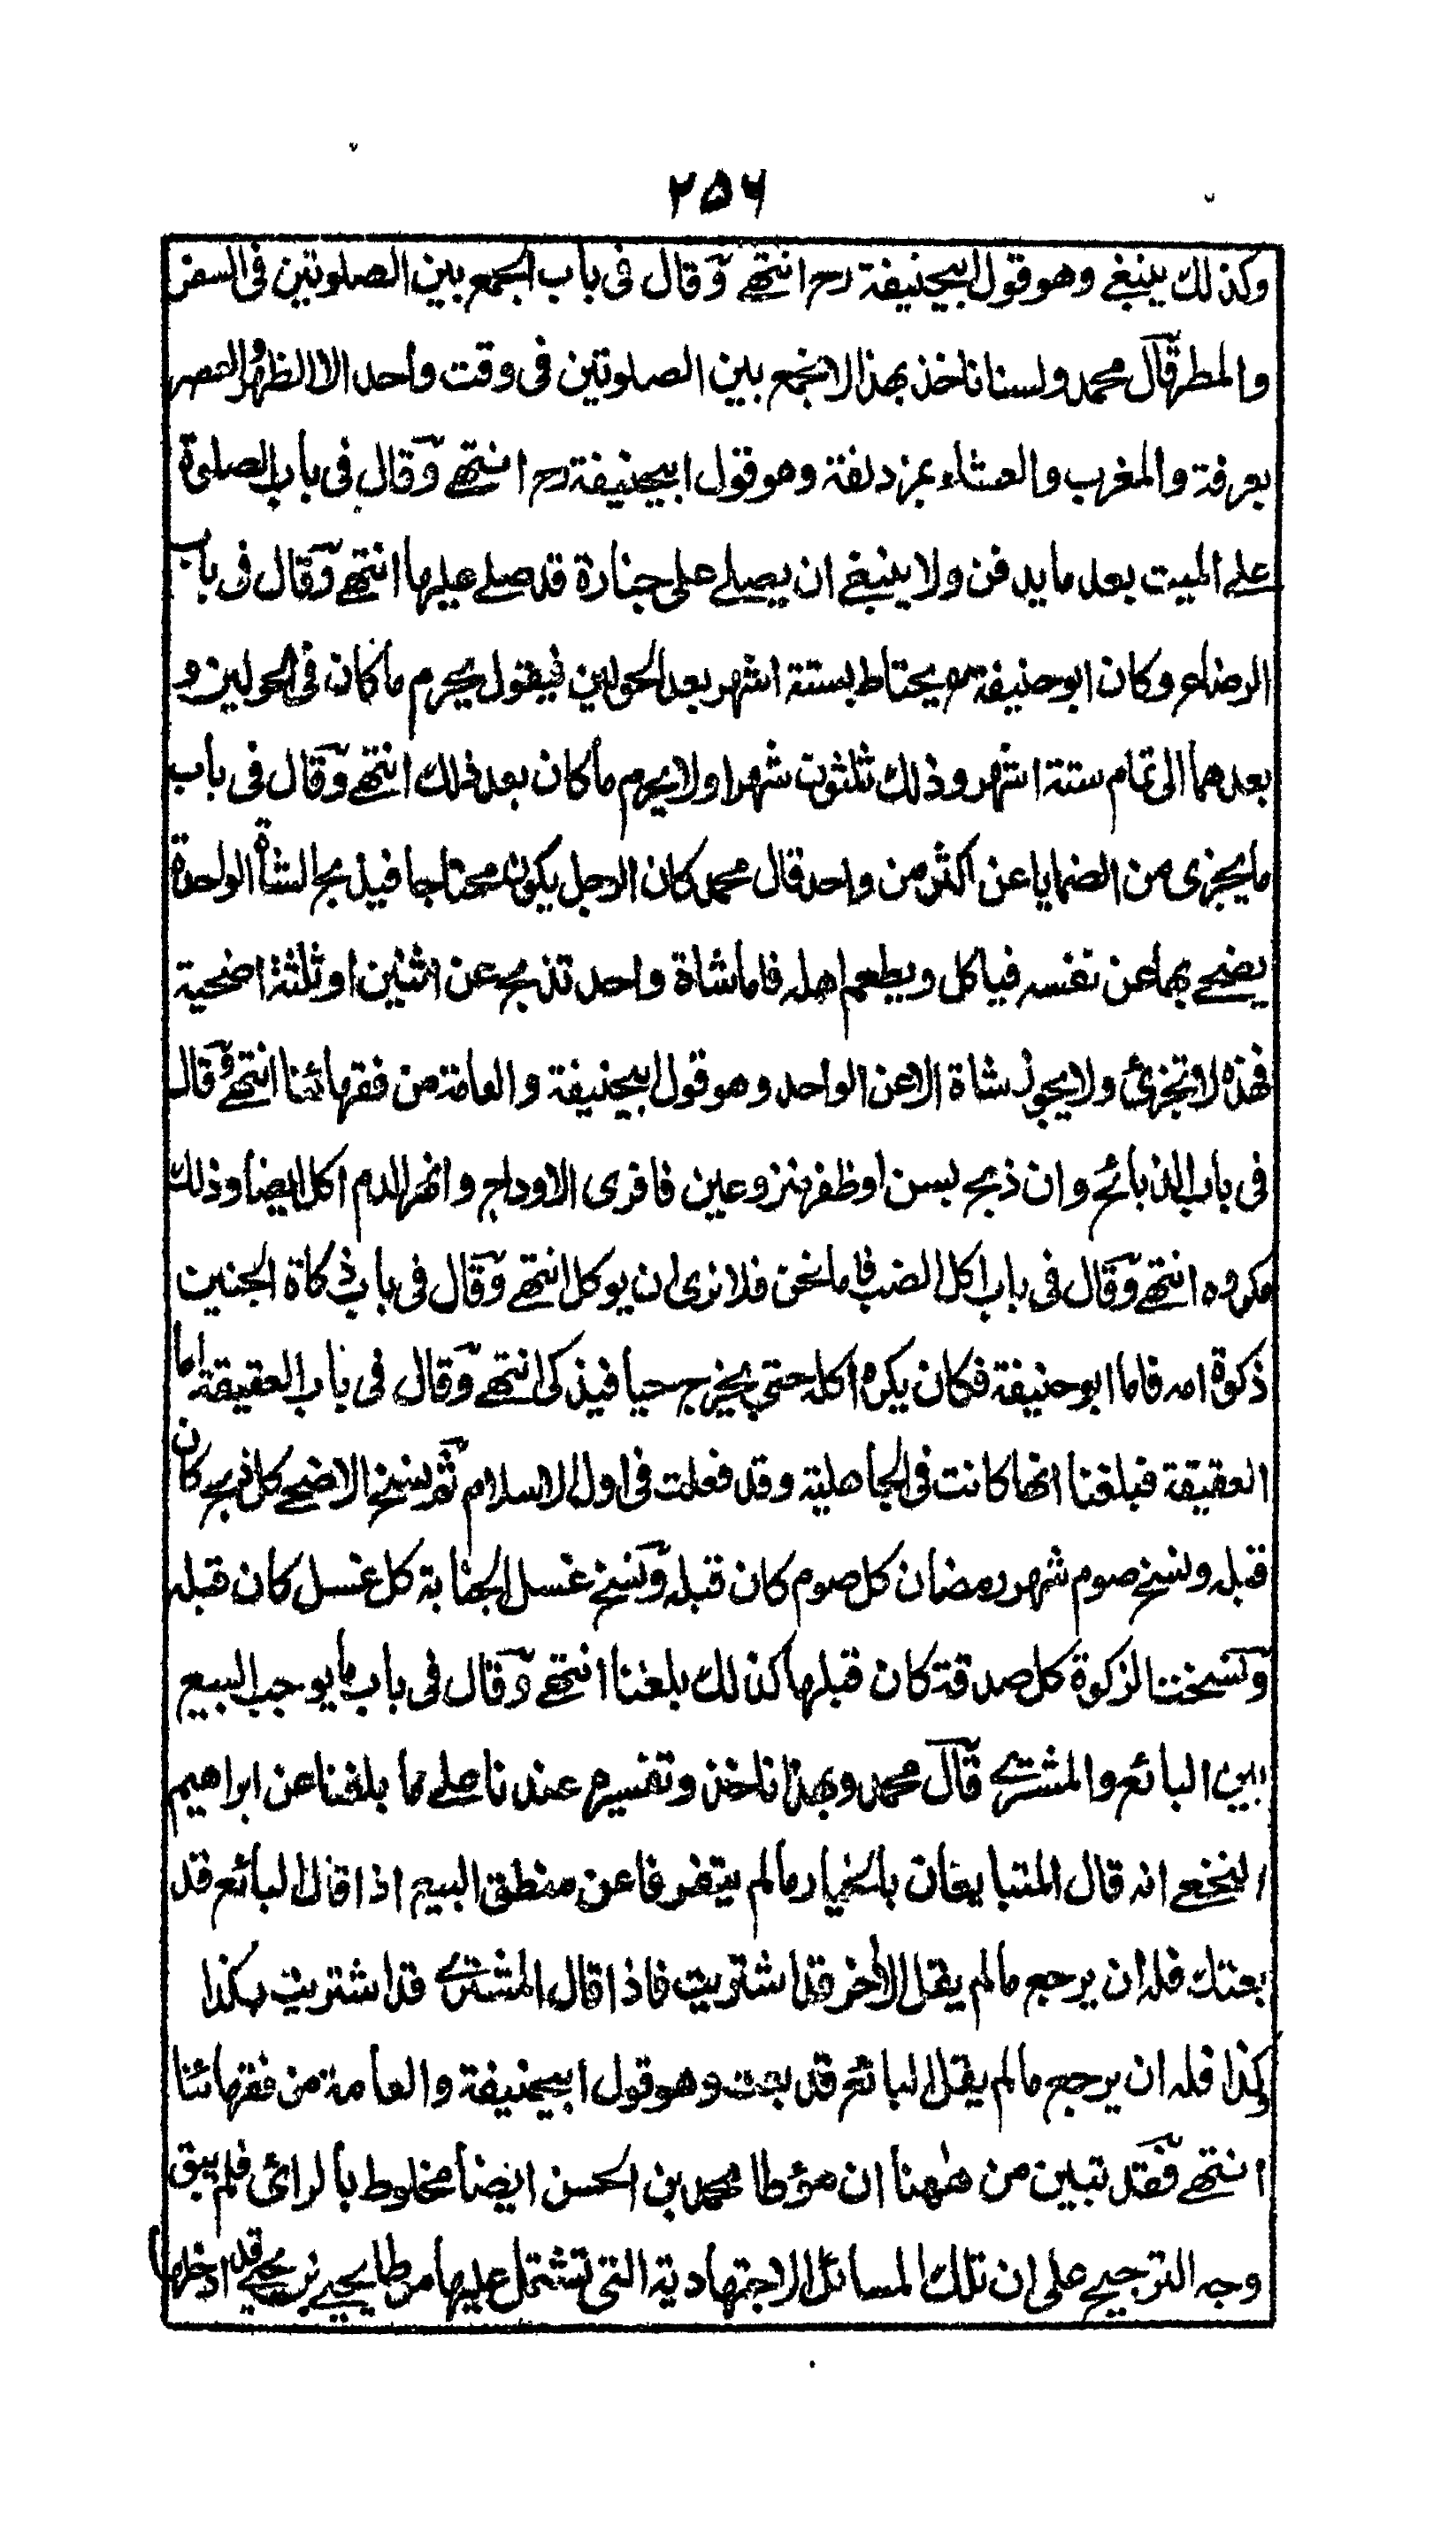 ۲۵۶
وكذلك ينبغے وهو قول ابيحنيفة رح انتهے وقال فى باب الجمع بين الصلوتين فى السفر
والمطر قال محمد ولسنا ناخذ بهذا لا نجمع بين الصلوتين فى وقت واحد الا الظهر والعصر
بعرفة والمغرب والعشاء بمزدلفة وهو قول ابيحنيفة رح انتهے وقال فى باب الصلوة
علے الميت بعد ما يدفن ولا ينبغے ان يصلے على جنازة قد صلے عليها انتهے وقال فى باب
الرضاع وكان ابو حنيفة رح يحتاط بستة اشهر بعد الحولين فيقول يحرم ما كان فى الحولين و
بعدهما الى تمام ستة اشهر وذلك ثلثون شهرا ولا يحرم ما كان بعد ذلك انتهے وقال فى باب
ما يجزى من الضحايا عن اكثر من واحد قال محمد كان الرجل يكون محتاجا فيذبح الشأة الواحدة
يضحے بها عن نفسه فياكل ويطعم اهله فاما شاة واحد تذبح عن اثنين او ثلثة اضحية
فهذه لا تجزئ ولا يجوز شاة الا عن الواحد وهو قول ابيحنيفة والعامة من فقهائنا انتهے وقال
فى باب الذبائح وان ذبح بسن او ظفر منزوعين فافرى الاوداج وانهر الدم اكل ايضا وذلك
مكروه انتهے وقال فى باب اكل الضب فاما نحن فلا نرى ان يوكل انتهے وقال فى باب ذكاة الجنين
ذكوة امه فاما ابو حنيفة فكان يكره اكله حتى يخرج حيا فيذكى انتهے وقال فى باب العقيقة اما
العقيقة فبلغنا انها كانت فى الجاهلية وقد فعلت فى اول الاسلام ثم نسخ الاضحے كل ذبح كان
قبله ونسخ صوم شهر رمضان كل صوم كان قبله ونسخ غسل الجنابة كل غسل كان قبله
ونسخت الزكوة كل صدقة كان قبلها كذلك بلغنا انتهے وقال فى باب ما يوجب البيع
بين البائع والمشترے قال محمد وبهذا ناخذ وتفسيره عندنا علے ما بلغنا عن ابراهيم
النخعے انه قال المتبايعان بالخيار ما لم يتفرفا عن منطق البيع اذا قال البائع قد
بعتك فله ان يرجع ما لم يقل الأخر قد اشتريت فاذا قال المشترے قد اشتريت بكذا
وكذا فله ان يرجع ما لم يقل البائع قد بعت وهو قول ابيحنيفة والعامة من فقهائنا
انتهے فقد تبين من ههنا ان مؤطا محمد بن الحسن ايضا مخلوط بالرائى فلم يبق
وجه الترجيح على ان تلك المسائل الاجتهادية التى تشتمل عليها مؤطا يحيے بن يحيے قد ادخلها